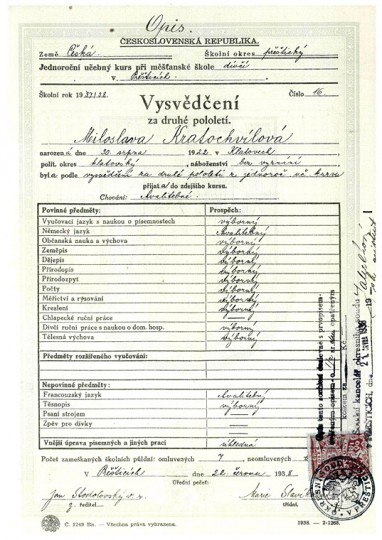 Opis.
ČESKOSLOVENSKÁ REPUBLIKA.
Země Česká Školní okres přeštický
Jednoroční učebný kurs při měšťanské škole dívčí
v Přešticích
Školní rok 1937/38. Číslo 16.
Vysvědčení
za druhé pololetí.
Miloslava Kratochvílová
narozena dne 30. srpna 1922 v Klatovech
polit. okres klatovský, náboženství bez vyznání
byla podle vysvědčení za druhé pololetí z jednoroč. uč. kursu
přijata do zdejšího kursu.
Chování: chvalitebné
Povinné předměty: Prospěch:
Vyučovací jazyk s naukou o písemnostech výborný
Německý jazyk chvalitebný
Občanská nauka a výchova výborný
Zeměpis výborný
Dějepis výborný
Přírodopis výborný
Přírodozpyt výborný
Počty výborný
Měřictví a rýsování výborný
Kreslení výborný
Chlapecké ruční práce —
Dívčí ruční práce s naukou o dom. hosp. výborný
Tělesná výchova výborný
Předměty rozšířeného vyučování:
Nepovinné předměty:
Francouzský jazyk chvalitebný
Těsnopis výborný
Psaní strojem —
Zpěv pro dívky —
Vnější úprava písemných a jiných prací úhledná
Počet zameškaných školních půldní: omluvených 7 neomluvených
V Přešticích dne 22. června 1938
Úřední pečeť:
Jan Stodolovský v. r. Marie
ředitel. Třídní učitel.
Č. 2248 Sn. — Všechna práva vyhrazena. 1938.